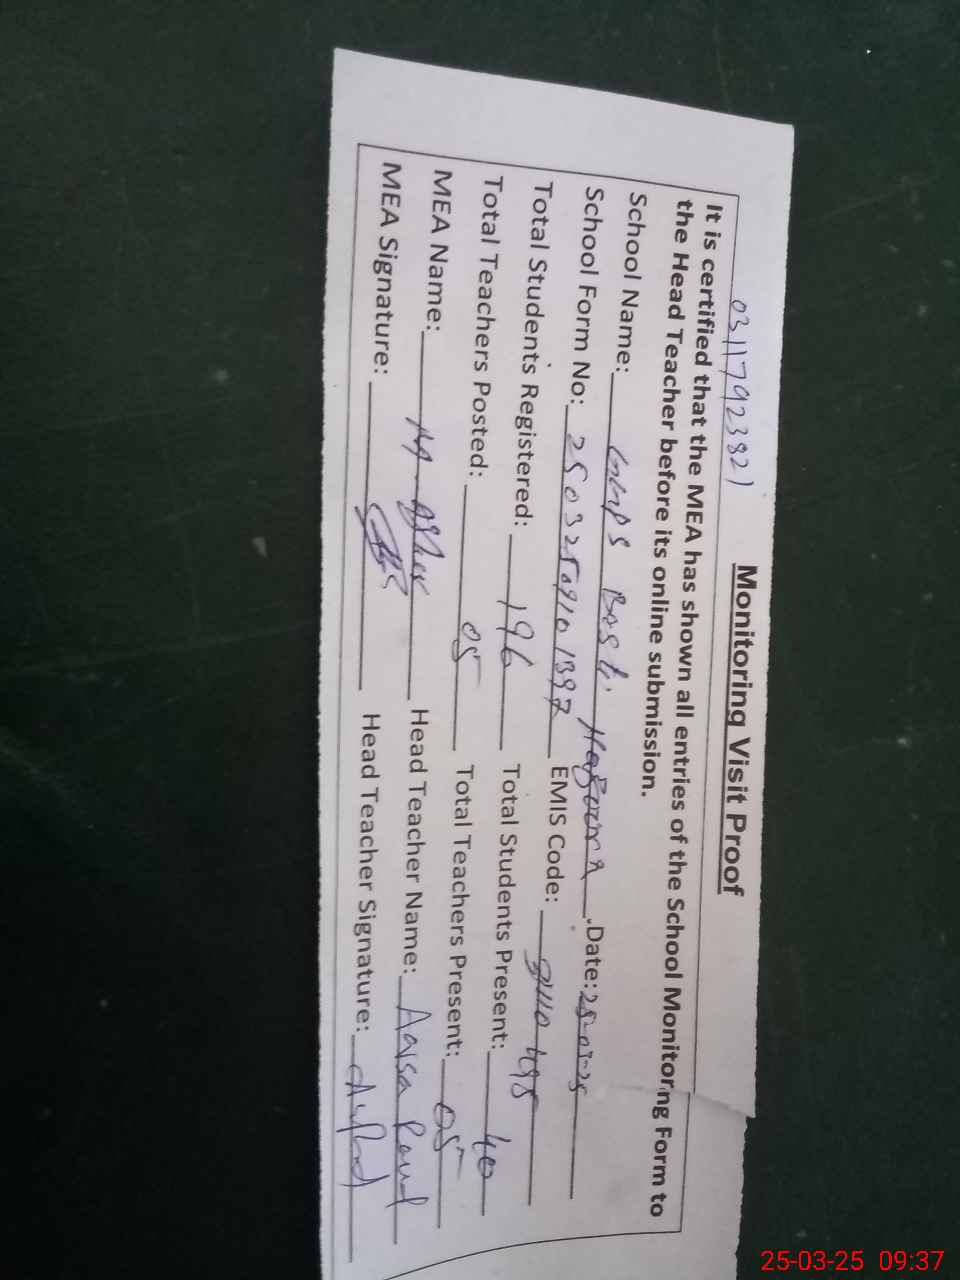 03117923821
Monitoring Visit Proof
It is certified that the MEA has shown all entries of the School Monitoring Form to
the Head Teacher before its online submission.
School Name: .Date: 25-03-25
School Form No: EMIS Code:
Total Students Registered: 196 Total Students Present: 40
Total Teachers Posted: 05 Total Teachers Present: 05
MEA Name: Head Teacher Name:
MEA Signature: Head Teacher Signature:
25-03-25 09:37